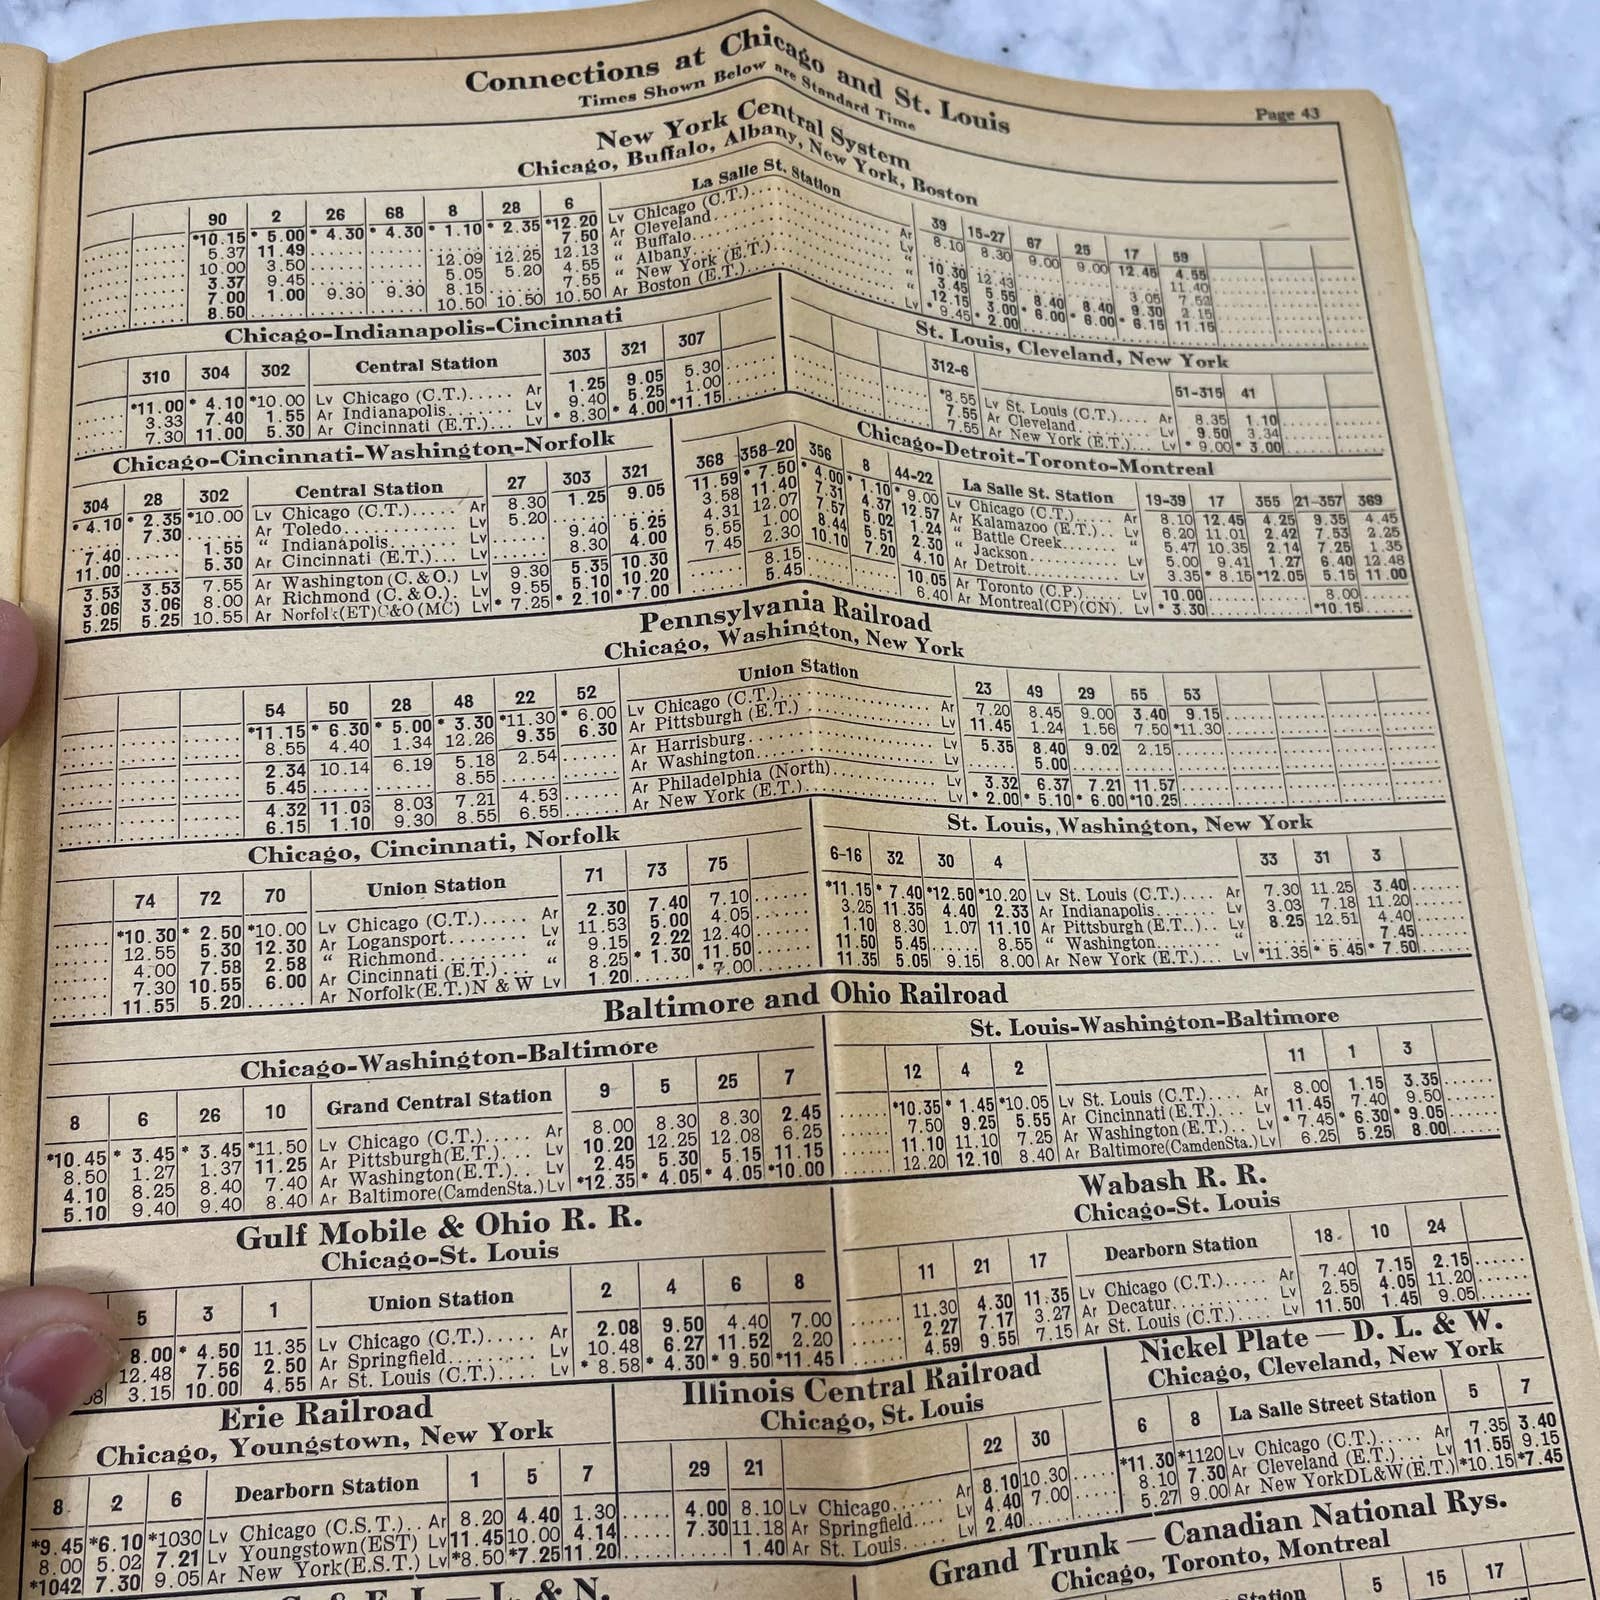 Connections at Chicago and St. Louis
Times Shown Below are Standard Time
Page 43
New York Central System
Chicago, Buffalo, Albany, New York, Boston
90 2 26 68 8 28 6 La Salle St. Station 39 15-27 67 25 17 59
*10.15 * 5.00 * 4.30 * 4.30 * 1.10 * 2.35 *12.20 Lv Chicago (C.T.) Ar 8.10 8.30 9.00 9.00 12.45 4.55
5.37 11.49 7.50 Ar Cleveland Lv 11.40
10.00 3.50 12.09 12.25 12.13 “ Buffalo “ 10.30 12.43 3.05 7.52
3.37 9.45 5.05 5.20 4.55 “ Albany “ 3.45 5.55 8.40 8.40 9.30 2.15
7.00 1.00 9.30 9.30 8.15 7.55 “ New York (E.T.) “ 12.15 3.00 * 6.00 * 6.00 * 6.15 11.15
8.50 10.50 10.50 10.50 Ar Boston (E.T.) Lv * 9.45 * 2.00
Chicago-Indianapolis-Cincinnati
310 304 302 Central Station 303 321 307
*11.00 * 4.10 *10.00 Lv Chicago (C.T.) Ar 1.25 9.05 5.30
3.33 7.40 1.55 Ar Indianapolis Lv 9.40 5.25 1.00
7.30 11.00 5.30 Ar Cincinnati (E.T.) Lv * 8.30 * 4.00 *11.15
St. Louis, Cleveland, New York
312-6 51-315 41
*8.55 Lv St. Louis (C.T.) Ar 8.35 1.10
7.55 Ar Cleveland Lv 9.50 3.34
7.55 Ar New York (E.T.) Lv * 9.00 * 3.00
Chicago-Cincinnati-Washington-Norfolk
304 28 302 Central Station 27 303 321
* 4.10 * 2.35 *10.00 Lv Chicago (C.T.) Ar 8.30 1.25 9.05
7.30 Ar Toledo Lv 5.20
7.40 1.55 “ Indianapolis Lv 9.40 5.25
11.00 5.30 Ar Cincinnati (E.T.) Lv 8.30 4.00
3.53 3.53 7.55 Ar Washington (C. & O.) Lv 9.30 5.35 10.30
3.06 3.06 8.00 Ar Richmond (C. & O.) Lv 9.55 5.10 10.20
5.25 5.25 10.55 Ar Norfolk(ET)C&O(MC) Lv * 7.25 * 2.10 * 7.00
Chicago-Detroit-Toronto-Montreal
368 358-20 356 8 44-22 La Salle St. Station 19-39 17 355 21-357 369
11.59 * 7.50 * 4.00 * 1.10 * 9.00 Lv Chicago (C.T.) Ar 8.10 12.45 4.25 9.35 4.45
3.58 11.40 7.31 4.37 12.57 Ar Kalamazoo (E.T.) Lv 6.20 11.01 2.42 7.53 2.25
4.31 12.07 7.57 5.02 1.24 “ Battle Creek “ 5.47 10.35 2.14 7.25 1.35
5.55 1.00 8.44 5.51 2.30 “ Jackson “ 5.00 9.41 1.27 6.40 12.48
7.45 2.30 10.10 7.20 4.10 Ar Detroit Lv 3.35 * 8.15 *12.05 5.15 11.00
8.15 10.05 Ar Toronto (C.P.) Lv 10.00 8.00
5.45 6.40 Ar Montreal(CP)(CN) Lv * 3.30 *10.15
Pennsylvania Railroad
Chicago, Washington, New York
54 50 28 48 22 52 Union Station 23 49 29 55 53
*11.15 * 6.30 * 5.00 * 3.30 *11.30 * 6.00 Lv Chicago (C.T.) Ar 7.20 8.45 9.00 3.40 9.15
8.55 4.40 1.34 12.26 9.35 6.30 Ar Pittsburgh (E.T.) Lv 11.45 1.24 1.56 7.50 *11.30
2.34 10.14 6.19 5.18 2.54 Ar Harrisburg Lv 5.35 8.40 9.02 2.15
5.45 8.55 Ar Washington Lv 5.00
4.32 11.03 8.03 7.21 4.53 Ar Philadelphia (North) Lv 3.32 6.37 7.21 11.57
6.15 1.10 9.30 8.55 6.55 Ar New York (E.T.) Lv * 2.00 * 5.10 * 6.00 *10.25
Chicago, Cincinnati, Norfolk
74 72 70 Union Station 71 73 75
*10.30 * 2.50 *10.00 Lv Chicago (C.T.) Ar 2.30 7.40 7.10
12.55 5.30 12.30 Ar Logansport “ 11.53 5.00 4.05
4.00 7.58 2.58 “ Richmond “ 9.15 2.22 12.40
7.30 10.55 6.00 Ar Cincinnati (E.T.) “ 8.25 * 1.30 11.50
11.55 5.20 Ar Norfolk(E.T.)N & W Lv 1.20 * 7.00
St. Louis, Washington, New York
6-16 32 30 4 33 31 3
*11.15 * 7.40 *12.50 *10.20 Lv St. Louis (C.T.) Ar 7.30 11.25 3.40
3.25 11.35 4.40 2.33 Ar Indianapolis Lv 3.03 7.18 11.20
1.10 8.30 1.07 11.10 Ar Pittsburgh (E.T.) Lv 8.25 12.51 4.40
11.50 5.45 8.55 “ Washington “ 7.45
11.35 5.05 9.15 8.00 Ar New York (E.T.) Lv *11.35 * 5.45 * 7.50
Baltimore and Ohio Railroad
Chicago-Washington-Baltimore
8 6 26 10 Grand Central Station 9 5 25 7
*10.45 * 3.45 * 3.45 *11.50 Lv Chicago (C.T.) Ar 8.00 8.30 8.30 2.45
8.50 1.27 1.37 11.25 Ar Pittsburgh(E.T.) Lv 10.20 12.25 12.08 6.25
4.10 8.25 8.40 7.40 Ar Washington(E.T.) Lv 2.45 5.30 5.15 11.15
5.10 9.40 9.40 8.40 Ar Baltimore(CamdenSta.) Lv *12.35 * 4.05 * 4.05 *10.00
St. Louis-Washington-Baltimore
12 4 2 11 1 3
*10.35 * 1.45 *10.05 Lv St. Louis (C.T.) Ar 8.00 1.15 3.35
7.50 9.25 5.55 Ar Cincinnati(E.T.) Lv 11.45 7.40 9.50
11.10 11.10 7.25 Ar Washington(E.T.) Lv * 7.45 * 6.30 * 9.05
12.20 12.10 8.40 Ar Baltimore(CamdenSta.) Lv 6.25 5.25 8.00
Gulf Mobile & Ohio R. R.
Chicago-St. Louis
5 3 1 Union Station 2 4 6 8
8.00 * 4.50 11.35 Lv Chicago (C.T.) Ar 2.08 9.50 4.40 7.00
12.48 7.56 2.50 Ar Springfield Lv 10.48 6.27 11.52 2.20
3.15 10.00 4.55 Ar St. Louis (C.T.) Lv * 8.58 * 4.30 * 9.50 *11.45
Wabash R. R.
Chicago-St. Louis
11 21 17 Dearborn Station 18 10 24
11.30 4.30 11.35 Lv Chicago (C.T.) Ar 7.40 7.15 2.15
2.27 7.17 3.27 Ar Decatur Lv 2.55 4.05 11.20
4.59 9.55 7.15 Ar St. Louis (C.T.) Lv 11.50 1.45 9.05
Erie Railroad
Chicago, Youngstown, New York
8 2 6 Dearborn Station 1 5 7
*9.45 *6.10 *1030 Lv Chicago (C.S.T.) Ar 8.20 4.40 1.30
8.00 5.02 7.21 Lv Youngstown(EST) Lv 11.45 10.00 4.14
*1042 7.30 9.05 Ar New York(E.S.T.) Lv *8.50 *7.25 11.20
Illinois Central Railroad
Chicago, St. Louis
29 21 22 30
4.00 8.10 Lv Chicago Ar 8.10 10.30
7.30 11.18 Ar Springfield Lv 4.40 7.00
1.40 Ar St. Louis Lv 2.40
Nickel Plate — D. L. & W.
Chicago, Cleveland, New York
6 8 La Salle Street Station 5 7
*11.30 *1120 Lv Chicago (C.T.) Ar 7.35 3.40
8.10 7.30 Ar Cleveland (E.T.) Lv 11.55 9.15
5.27 9.00 Ar New YorkDL&W(E.T.) *10.15 *7.45
Grand Trunk — Canadian National Rys.
Chicago, Toronto, Montreal
5 15 17
& E. I. — L. & N.